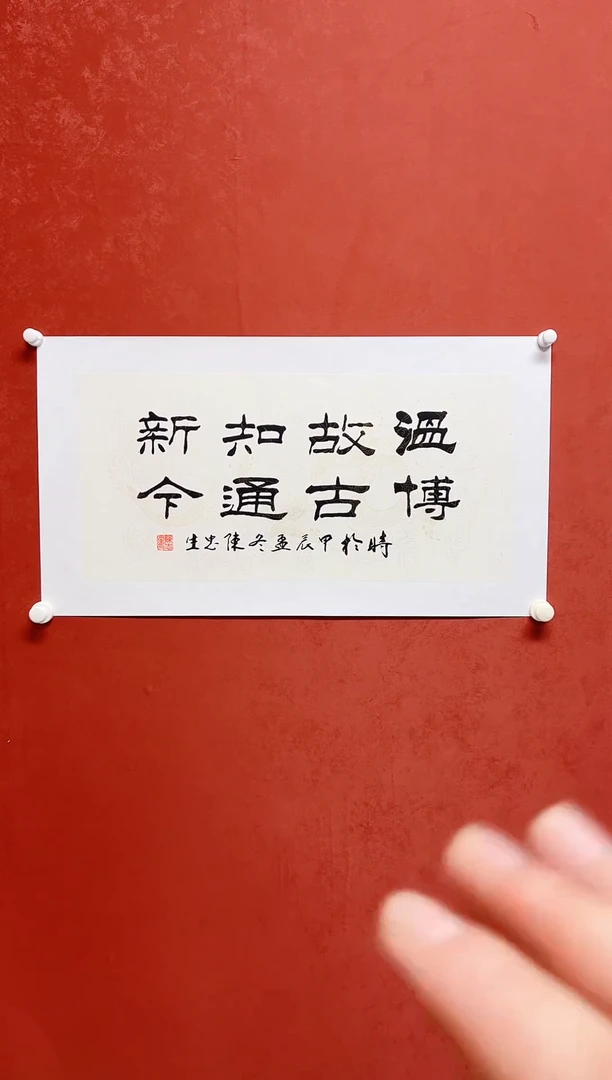 溫故知新
博古通今
時於甲辰孟冬陳忠生